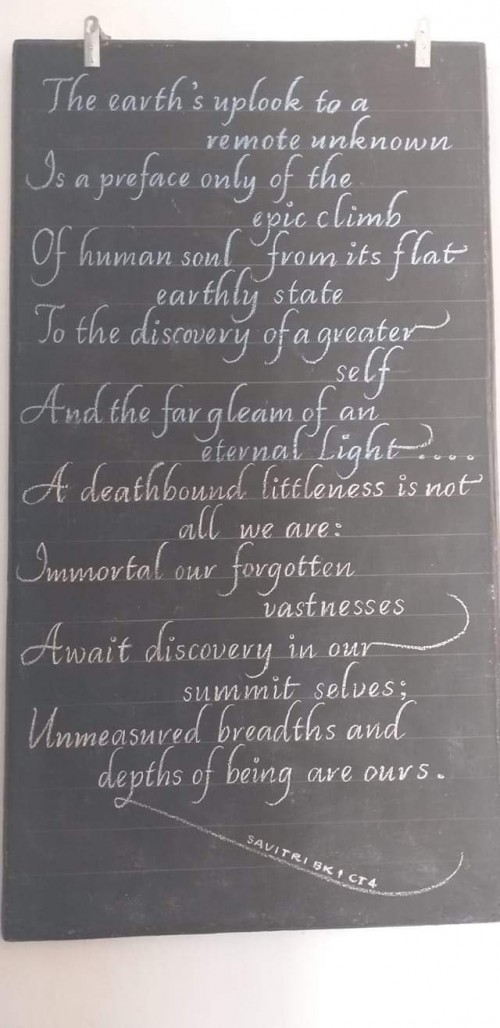 The earth's uplook to a
remote unknown
Is a preface only of the
epic climb
Of human soul from its flat
earthly state
To the discovery of a greater
self
And the far gleam of an
eternal Light....
A deathbound littleness is not
all we are:
Immortal our forgotten
vastnesses
Await discovery in our
summit selves;
Unmeasured breadths and
depths of being are ours.
SAVITRI BK 1 CT4